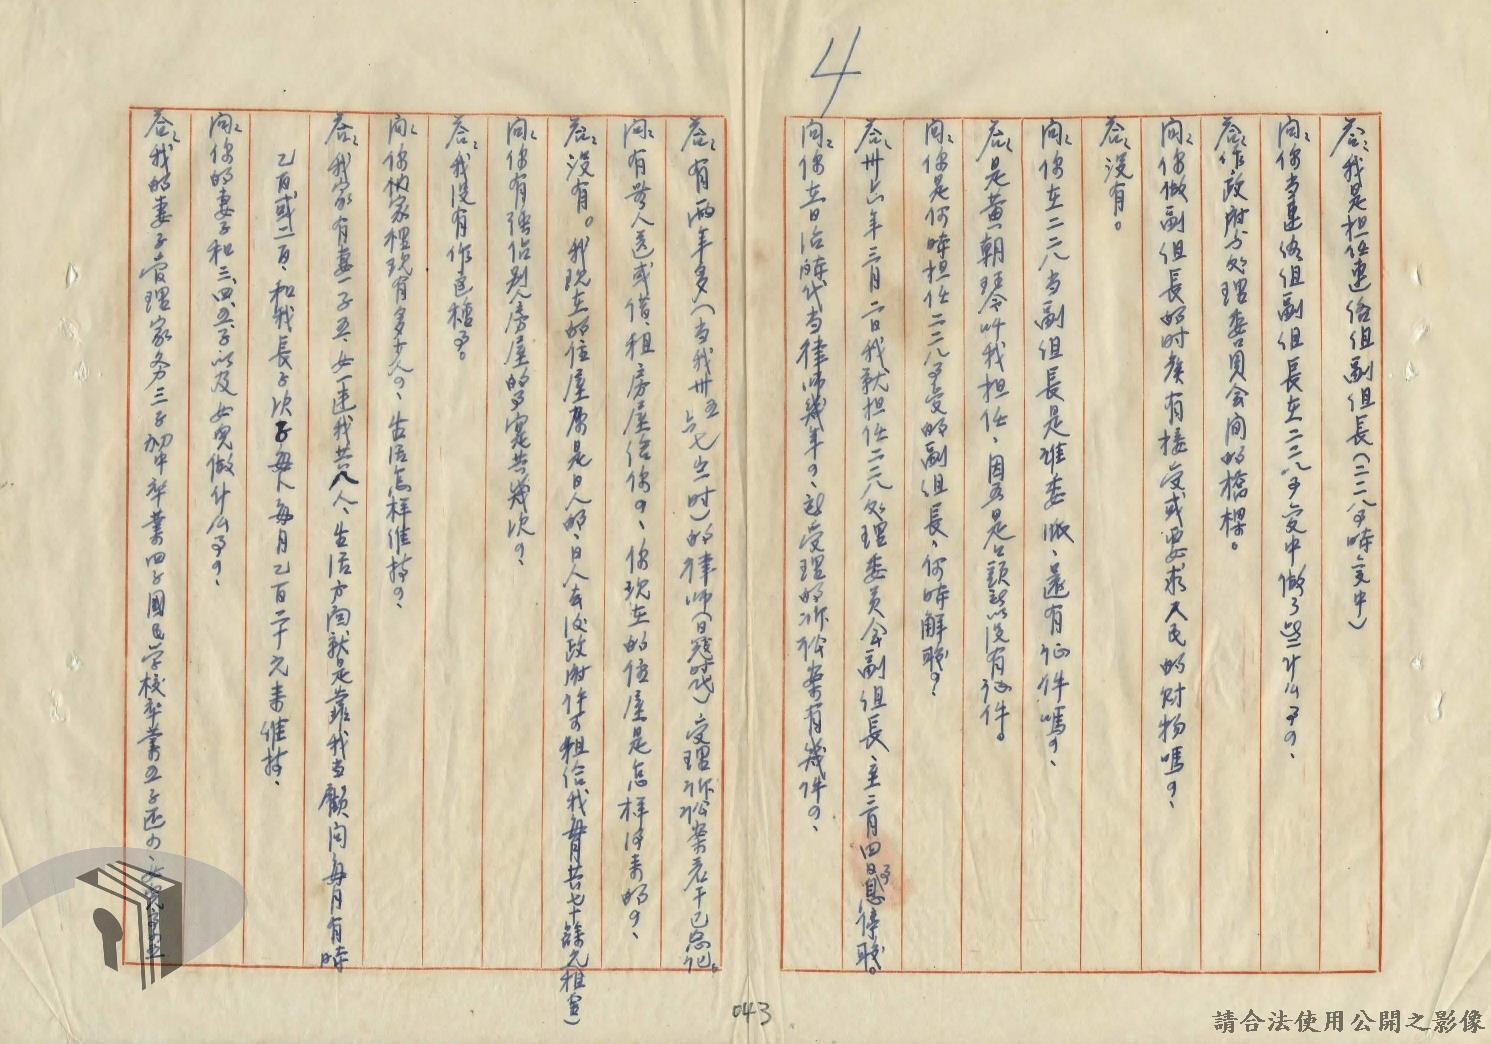 4
答:我是担任連絡組副組長(二二八事時变中)
问:你当連絡組副組長在二二八事变中做了些什么事?、
答:作政府与处理委員会间的橋樑。
问:你做副組長的时候有接受或要求人民的财物嗎?、
答:没有。
问:你在二二八当副組長是谁委派、還有证件嗎?、
答:是黄朝琴叫我担任、因为是口頭所以没有证件。
问:你是何時担任二二八事变的副組長、何時解职?
答:卅六年三月二日我就担任二二八处理委员会副組長、至三月四日事息停职。
问:你在日治時代当律师幾年?、所受理的诉讼案有幾件?、
答:有兩年多(当我卅五六七岁时)的律师(日冠时代)受理诉讼案若干已忘记。
问:有無人送或借、租房屋给你?、你现在的住屋是怎样得来的?、
答:没有。我现在的住屋原是日人的、日人去后政府许可租给我每月共七十餘元租金)
问:你有强佔别人房屋的事实共幾次?、
答:我没有作这種事。
问:你的家裡现有多少人?、生活怎样维持?、
答:我家有妻一子五、女一連我共八人、生活方面就是靠我当顧问每月有時
乙百或二百、和我長子次子每人每月乙百二十元来维持、
问:你的妻子和三、四、五子以及女兒做什么事?、
答:我的妻子管理家务三子初中毕業四子國民学校毕業五子还少、女兒
043
請合法使用公開之影像